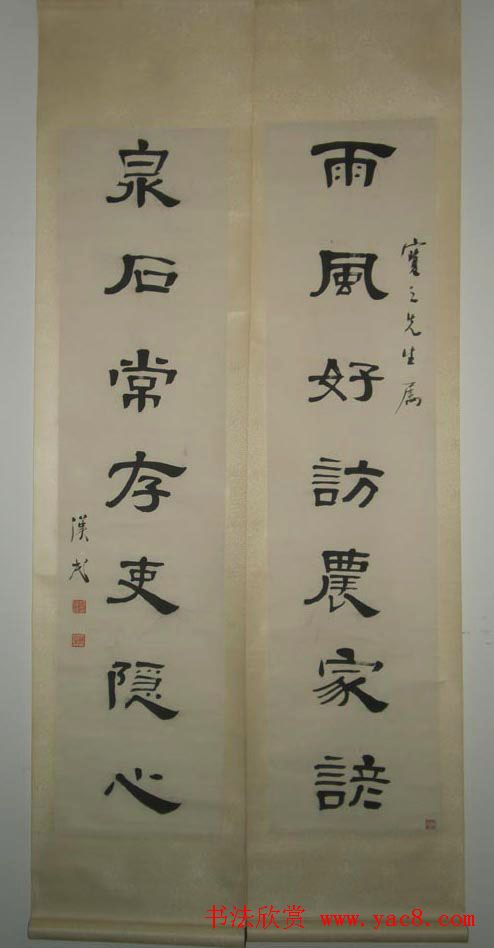 雨風好訪農家諺
寶之先生属
泉石常存吏隱心
漢民
书法欣赏 www.yac8.com